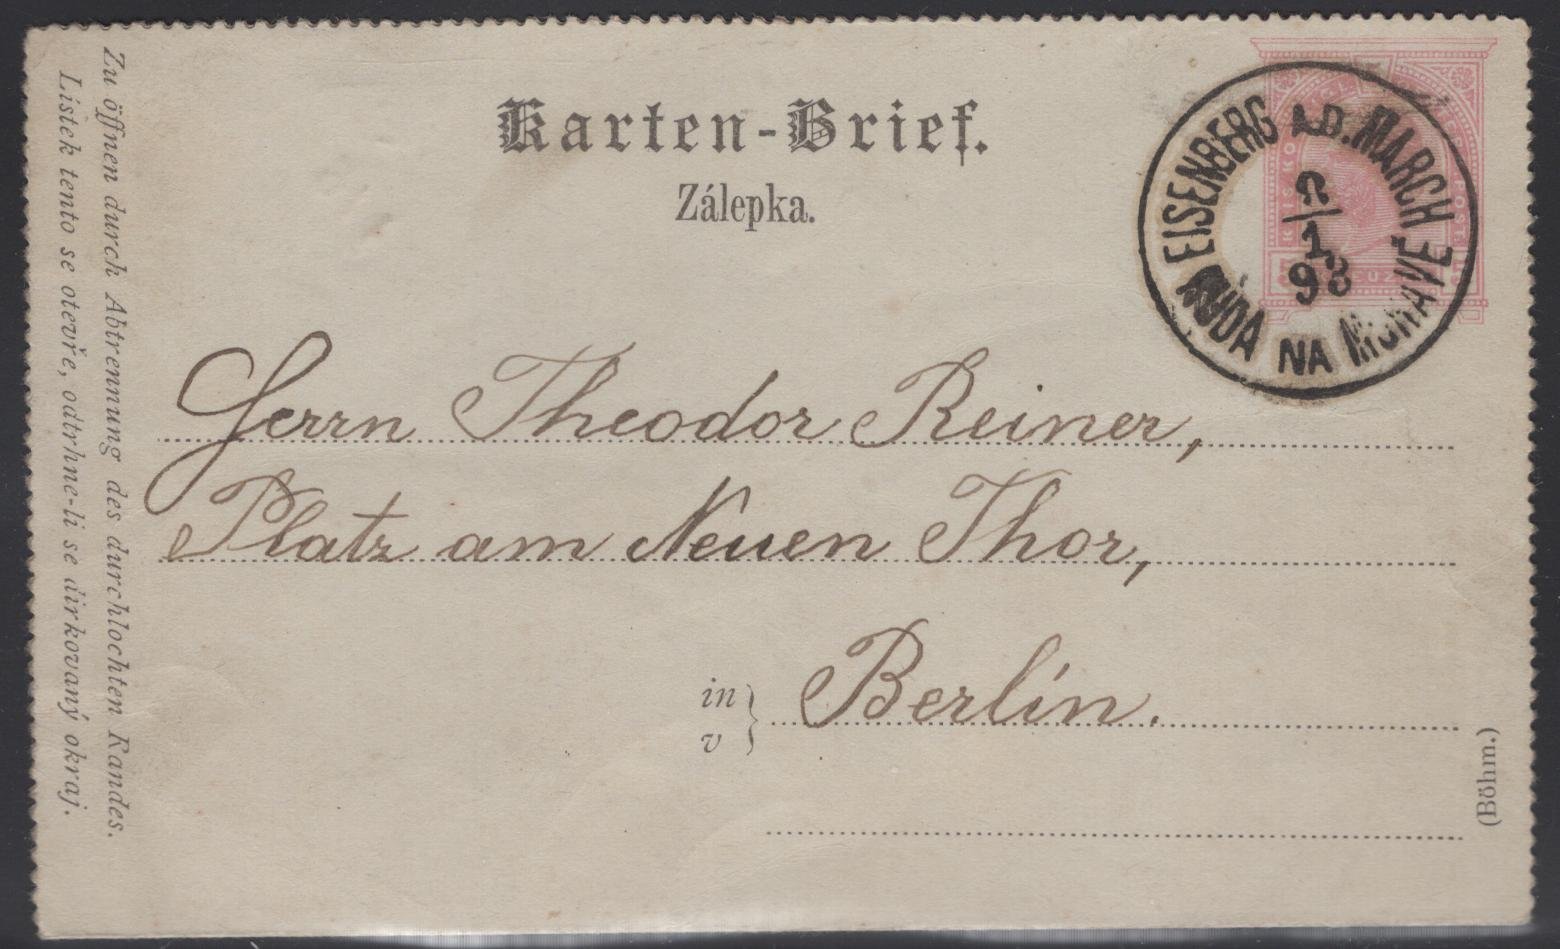 Karten-Brief.
Zálepka.
EISENBERG A.D. MARCH
RUDA NA MORAVĚ
2/1
98
Herrn Theodor Reiner,
Platz am Neuen Thor,
in
v
Berlin.
(Böhm.)
Zu öffnen durch Abtrennung des durchlochten Randes.
Lístek tento se otevře, odtrhne-li se dirkovaný okraj.